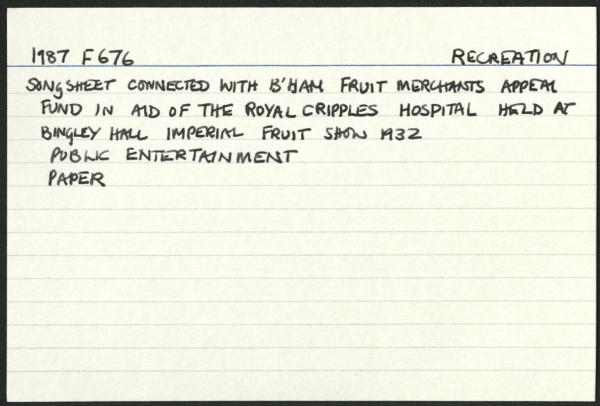 1987 F676 RECREATION
SONGSHEET CONNECTED WITH B'HAM FRUIT MERCHANTS APPEAL
FUND IN AID OF THE ROYAL CRIPPLES HOSPITAL HELD AT
BINGLEY HALL IMPERIAL FRUIT SHOW 1932
PUBLIC ENTERTAINMENT
PAPER